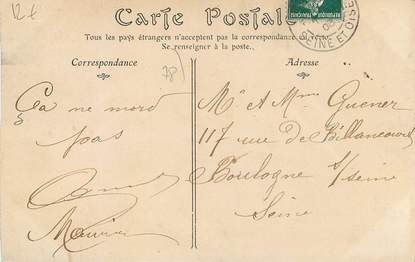 12 €
Carte Postale
Tous les pays étrangers n'acceptent pas la correspondance
Se renseigner à la poste.
Correspondance
Adresse
78
SEINE ET OISE
Ça ne mord
pas
Maurice
Mr et Mme Guener
117 rue de Billancourt
Boulogne s/seine
Seine